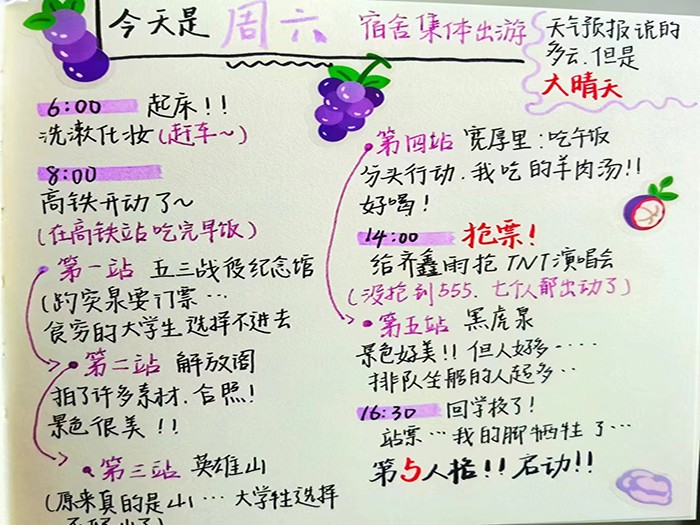 今天是 周六 宿舍集体出游
天气预报说的
多云.但是
大晴天
6:00 起床!!
洗漱化妆(赶车~)
8:00
高铁开动了~
(在高铁站吃完早饭)
第一站 五三战役纪念馆
(趵突泉要门票…
贫穷的大学生选择不进去
第二站 解放阁
拍了许多素材.合照!
景色很美!!
第三站 英雄山
(原来真的是山…大学生选择
第四站 宽厚里:吃午饭
分头行动.我吃的羊肉汤!!
好喝!
14:00 抢票!
给齐鑫雨抢TNT演唱会
(没抢到555.七个人都出动了)
第五站 黑虎泉
景色好美!!但人好多……
排队坐船的人超多..
16:30 回学校了!
站票…我的脚牺牲了…
第5人格!!启动!!